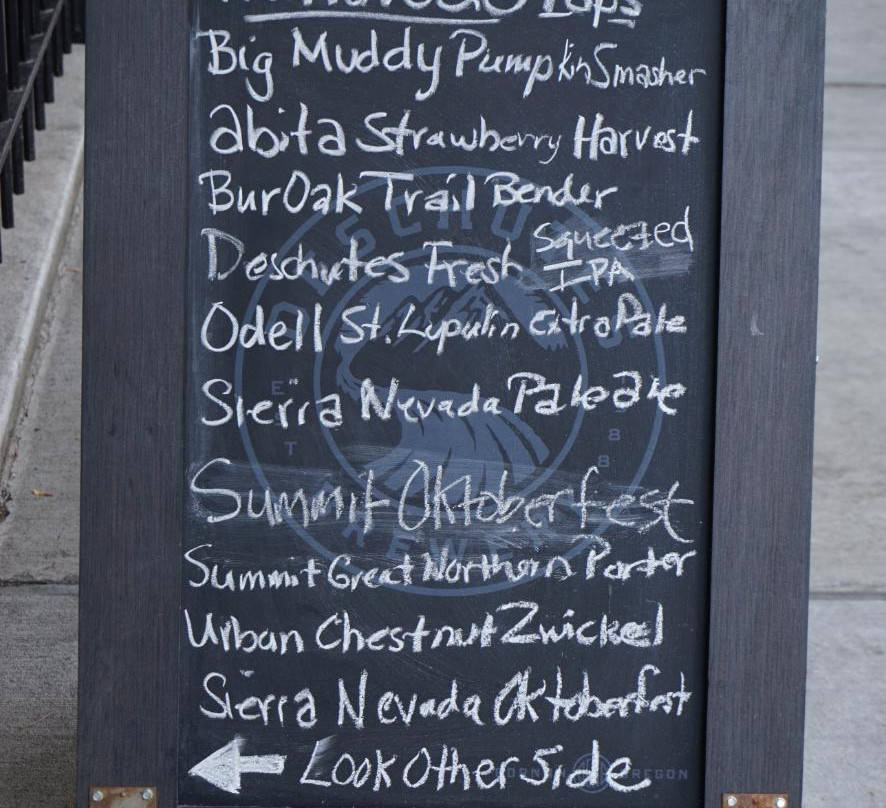 Taps
Big Muddy Pumpkin Smasher
abita Strawberry Harvest
Bur Oak Trail Bender
Deschutes Fresh Squeezed IPA
Odell St. Lupulin extra Pale
Sierra Nevada Pale ale
Summit Oktoberfest
Summit Great Northern Porter
Urban Chestnut Zwickel
Sierra Nevada Oktoberfest
Look Other Side
DESCHUTES
BREWERY
EST
88
OREGON